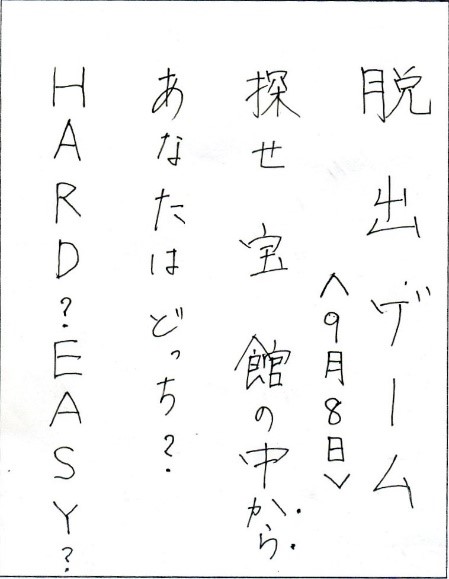 脱出ゲーム
<9月8日>
探せ宝 館の中から
あなたはどっち?
HARD?EASY?